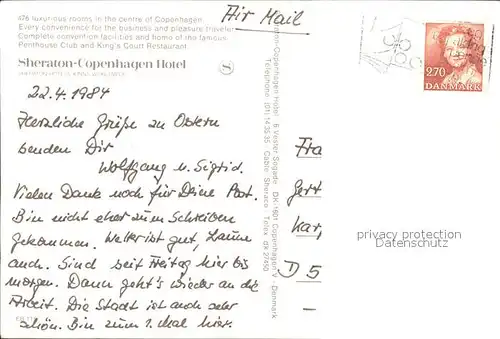 476 luxurious rooms in the centre of Copenhagen.
Every convenience for the business and pleasure traveler
Complete convention facilities and home of the famous
Penthouse Club and King's Court Restaurant
Sheraton-Copenhagen Hotel
Air Mail
22.4.1984
Herzliche Grüße zu Ostern
senden Dir
Wolfgang u. Sigrid.
Vielen Dank noch für Deine Post.
Bin nicht eher zum Schreiben
gekommen. Wetter ist gut, Laune
auch. Sind seit Freitag hier bis
morgen. Dann geht's wieder an die
Arbeit. Die Stadt ist auch sehr
schön. Bin zum 1. Mal hier.
Sheraton-Copenhagen Hotel 6 Vester Søgade DK-1601 Copenhagen V Denmark
Telephone (01) 14 35 35 Cable Sheraco Telex 27450
2.70
DANMARK
Fra
Gert
Kar
D 5
privacy protection
Datenschutz